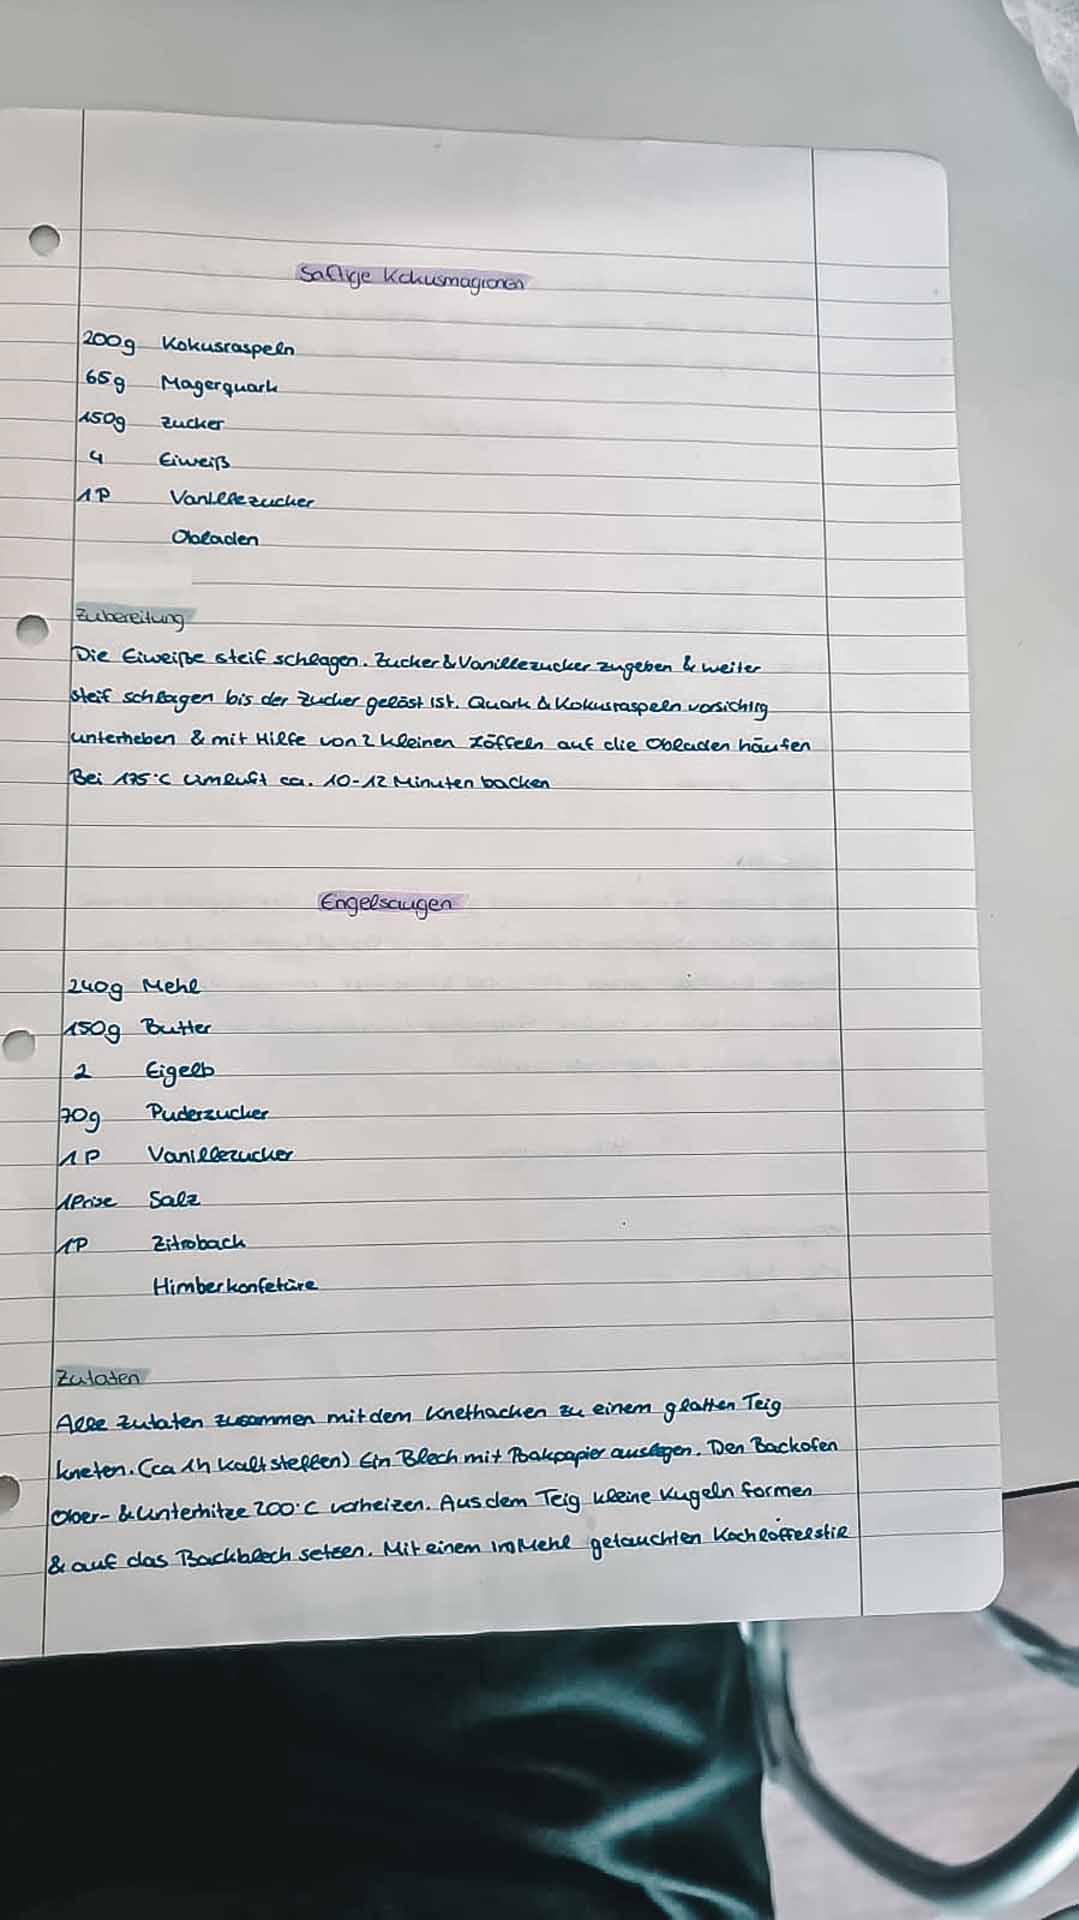 Saftige Kokusmagronen
200g Kokusraspeln
65g Magerquark
150g Zucker
4 Eiweiß
1P Vanillezucker
Obladen
Zubereitung
Die Eiweiße steif schlagen. Zucker & Vanillezucker zugeben & weiter
steif schlagen bis der Zucker gelöst ist. Quark & Kokusraspeln vorsichtig
unterheben & mit Hilfe von 2 kleinen Löffeln auf die Obladen häufen
Bei 175°C Umluft ca. 10-12 Minuten backen
Engelsaugen
240g Mehl
150g Butter
2 Eigelb
70g Puderzucker
1P Vanillezucker
1Prise Salz
1P Zitroback
Himberkonfetüre
Zutaten
Alle Zutaten zusammen mit dem Knethacken zu einem glatten Teig
kneten. (ca 1h kalt stellen) Ein Blech mit Bakpapier auslegen. Den Backofen
Ober- & Unterhitze 200°C vorheizen. Aus dem Teig kleine Kugeln formen
& auf das Backblech setzen. Mit einem in Mehl getauchten Kochlöffelstil